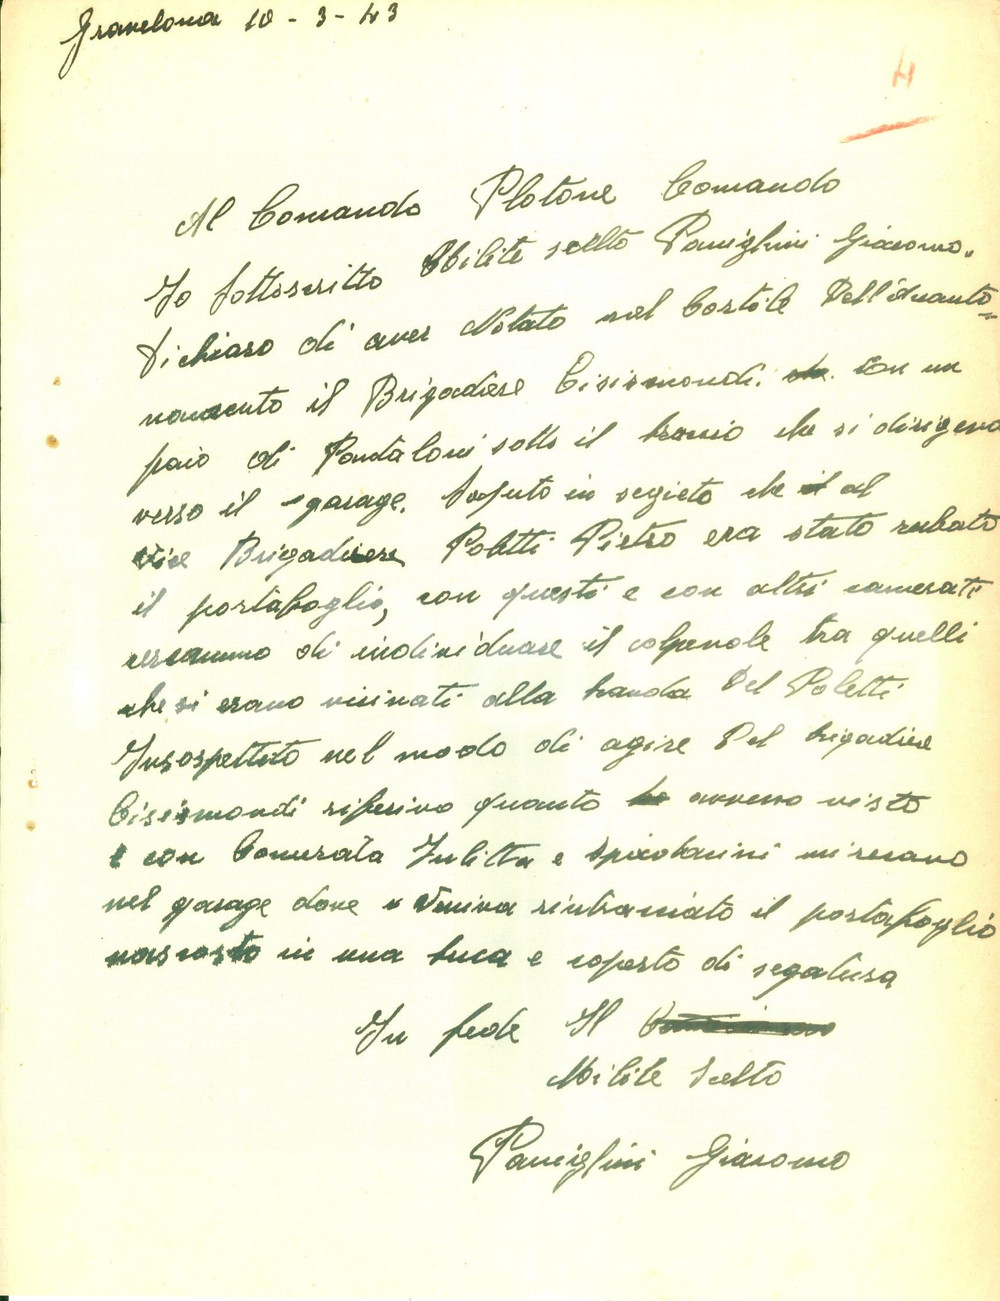 Gravelona 10-3-43
4
Al Comando Plotone Comando
Io sottoscritto Milite scelto Paniglini Giacomo.
dichiaro di aver Notato nel Cortile Dell'accanto=
namento il Brigadiere Cisismondi. con un
paio di Pantaloni sotto il braccio che si dirigeva
verso il garage. Saputo in segieto che al
Vice Brigadiere Poletti Pietro era stato rubato
il portafoglio, con questi e con altri camerati
cercammo di individuare il colpevole tra quelli
che si erano vicinati alla branda Del Poletti
Insospettito nel modo di agire Del brigadiere
Cisismondi riferivo quanto avevo visto
e con Camerata Julitta e mi recavo
nel garage dove Veniva rintracciato il portafoglio
nascosto in una buca e coperto di segatura
In fede Il
Milite Scelto
Paniglini Giacomo